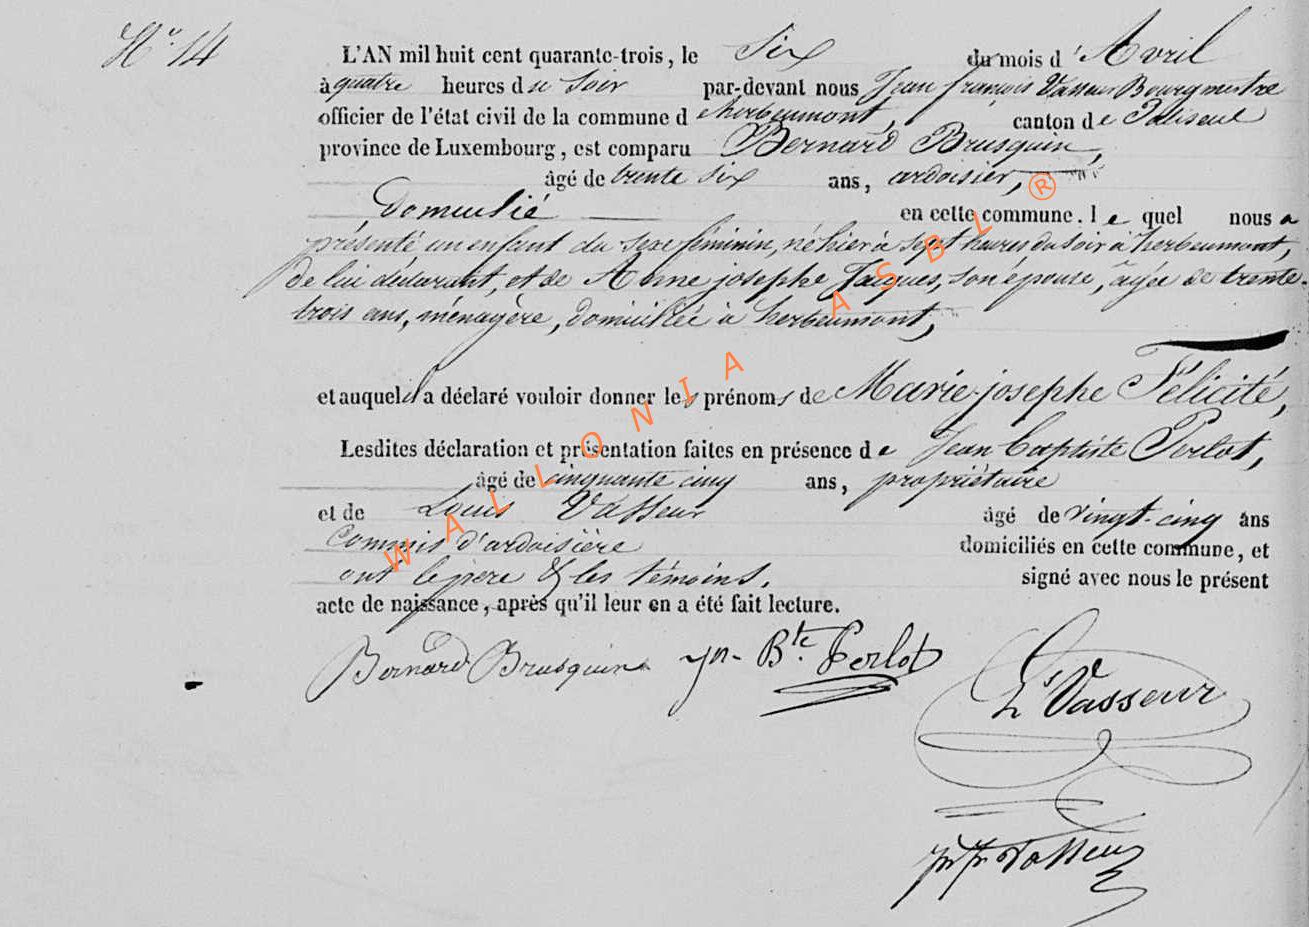 N° 14
L'AN mil huit cent quarante-trois, le Six du mois d'Avril
à quatre heures du Soir par-devant nous Jean françois Vasseur Bourgmestre
officier de l'état civil de la commune d'herbeumont, canton de Paliseul
province de Luxembourg, est comparu Bernard Brusquin,
âgé de trente six ans, ardoisier,
Domicilié en cette commune. le quel nous a
présenté un enfant du sexe féminin, né hier à sept heures du soir à herbeumont,
de lui déclarant, et de Anne josephe Jacques, son épouse, agée de trente-
trois ans, ménagère, domiciliée à herbeumont,
et auquel il a déclaré vouloir donner les prénoms de Marie-josephe Félicité,
Lesdites déclaration et présentation faites en présence de Jean Baptiste Perlot,
âgé de cinquante cinq ans, propriétaire
et de Louis Vasseur âgé de vingt-cinq ans
Commis d'ardoisière domiciliés en cette commune, et
ont le père & les témoins, signé avec nous le présent
acte de naissance, après qu'il leur en a été fait lecture.
Bernard Brusquin Jn- Bte. Perlot
Ls Vasseur
Jn fs Vasseur
WALLONIA ASBL ®